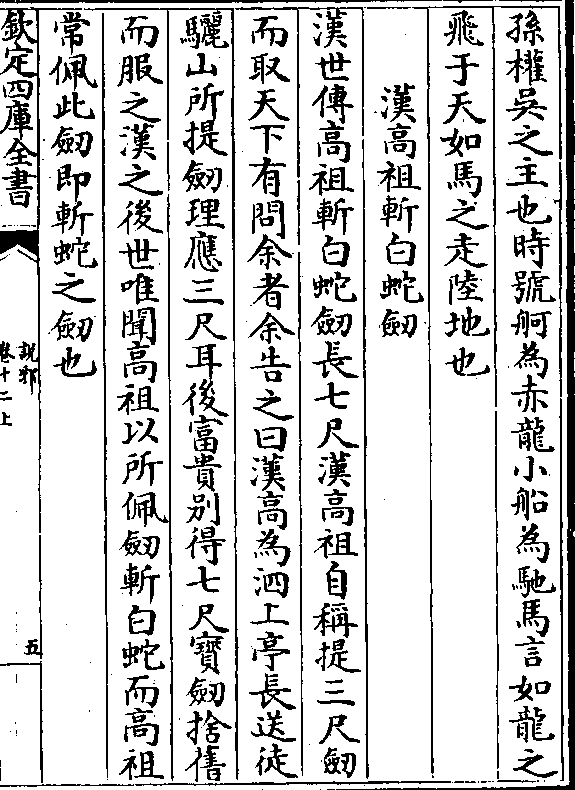 孫權吳之主也時號舸為赤龍小船為馳馬言如龍之
飛于天如馬之走陸地也
漢高祖斬白蛇劒
漢世傳高祖斬白蛇劒長七尺漢高祖自稱提三尺劒
而取天下有問余者余告之曰漢高為泗上亭長送徒
驪山所提劒理應三尺耳後富貴别得七尺寳劒捨舊
而服之漢之後世唯聞高祖以所佩劒斬白蛇而高祖
常佩此劒即斬蛇之劒也
欽定四庫全書
說郛
卷十二上
五